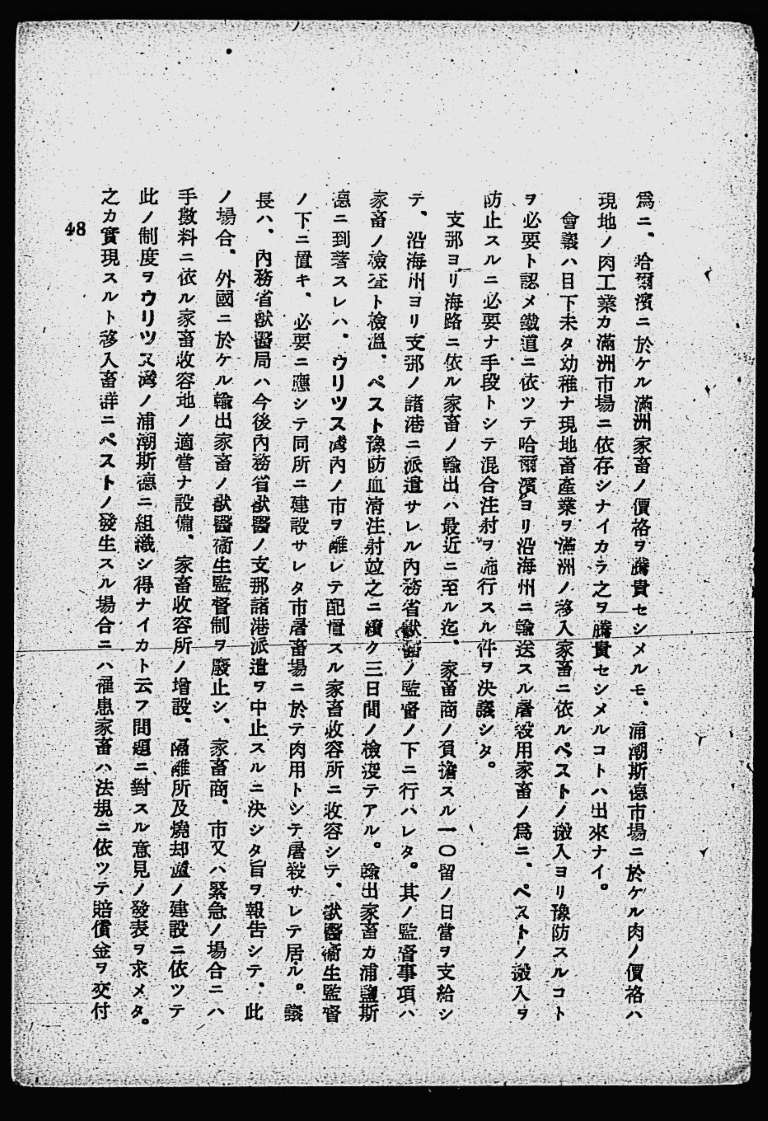 爲ニ、哈爾濱ニ於ケル滿洲家畜ノ價格ヲ騰貴セシメルモ、浦潮斯德市場ニ於ケル肉ノ價格ハ
現地ノ肉工業カ滿洲市場ニ依存シナイカラ之ヲ騰貴セシメルコトハ出來ナイ。
會議ハ目下未タ幼稚ナ現地畜產業ヲ滿洲ノ移入家畜ニ依ルペストノ搬入ヨリ豫防スルコト
ヲ必要ト認メ鐵道ニ依ツテ哈爾濱ヨリ沿海州ニ輸送スル屠殺用家畜ノ爲ニ、ペストノ搬入ヲ
防止スルニ必要ナ手段トシテ混合注射ヲ施行スル件ヲ決議シタ。
支那ヨリ海路ニ依ル家畜ノ輸出ハ最近ニ至ル迄、家畜商ノ負擔スル一〇留ノ日當ヲ支給シ
テ、沿海州ヨリ支那ノ諸港ニ派遣サレル內務省獸醫ノ監督ノ下ニ行ハレタ。其ノ監督事項ハ
家畜ノ檢査ト檢溫、ペスト豫防血淸注射竝之ニ續ク三日間ノ檢疫テアル。輸出家畜カ浦鹽斯
德ニ到著スレハ、ウリツス灣內ノ市ヲ離レテ配置スル家畜收容所ニ收容シテ、獸醫衞生監督
ノ下ニ置キ、必要ニ應シテ同所ニ建設サレタ市屠畜場ニ於テ肉用トシテ屠殺サレテ居ル。議
長ハ、內務省獸醫局ハ今後內務省獸醫ノ支那諸港派遣ヲ中止スルニ決シタ旨ヲ報告シテ、此
ノ場合、外國ニ於ケル輸出家畜ノ獸醫衞生監督制ヲ廢止シ、家畜商、市又ハ緊急ノ場合ニハ
手數料ニ依ル家畜收容地ノ適當ナ設備、家畜收容所ノ增設、隔離所及燒却爐ノ建設ニ依ツテ
此ノ制度ヲウリツス灣ノ浦潮斯德ニ組織シ得ナイカト云フ問題ニ對スル意見ノ發表ヲ求メタ。
之カ實現スルト移入畜群ニペストノ發生スル場合ニハ罹患家畜ハ法規ニ依ツテ賠償金ヲ交付
48